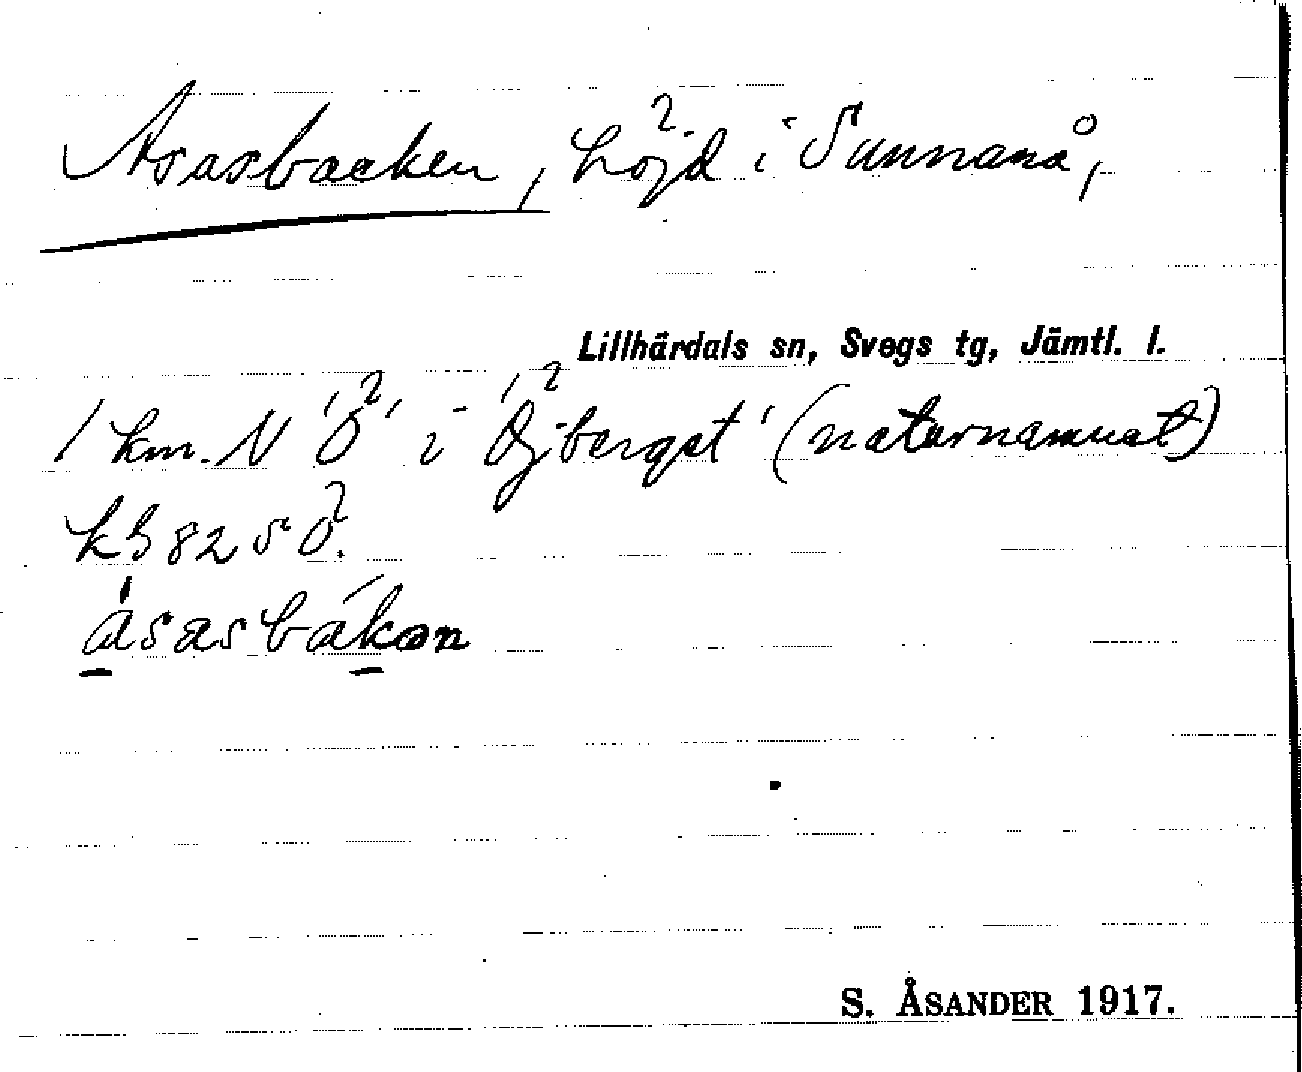 Asasbacken, höjd i Sunnanå,
Lillhärdals sn, Svegs tg, Jämtl. l.
1 km. N 'Ö' i 'Öjberget' (naturnamnet)
kb 82 SÖ.
åsasbákən
S. ÅSANDER 1917.